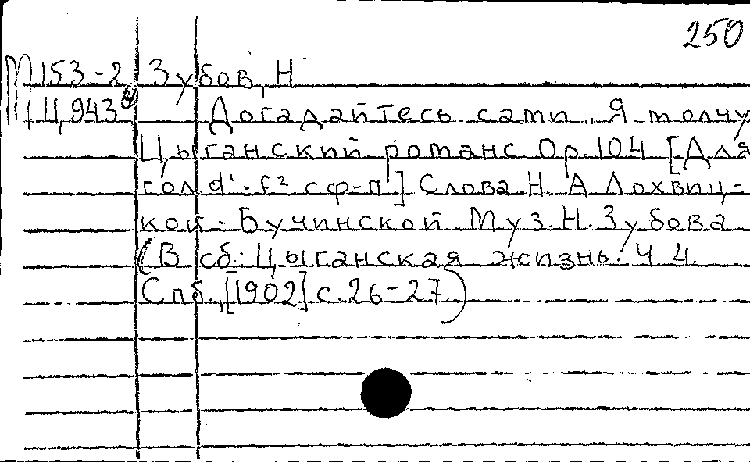 250
М 153-2 Зубов, Н
Ц 943 Догадайтесь сами. Я молчу
Цыганский романс Op. 104 [Для
гол. d'-f² с ф-п.] Слова Н. А Лохвиц-
кой-Бучинской Муз. Н. Зубова
(В сб.: Цыганская жизнь. Ч 4
Спб., [1902] с. 26-27)